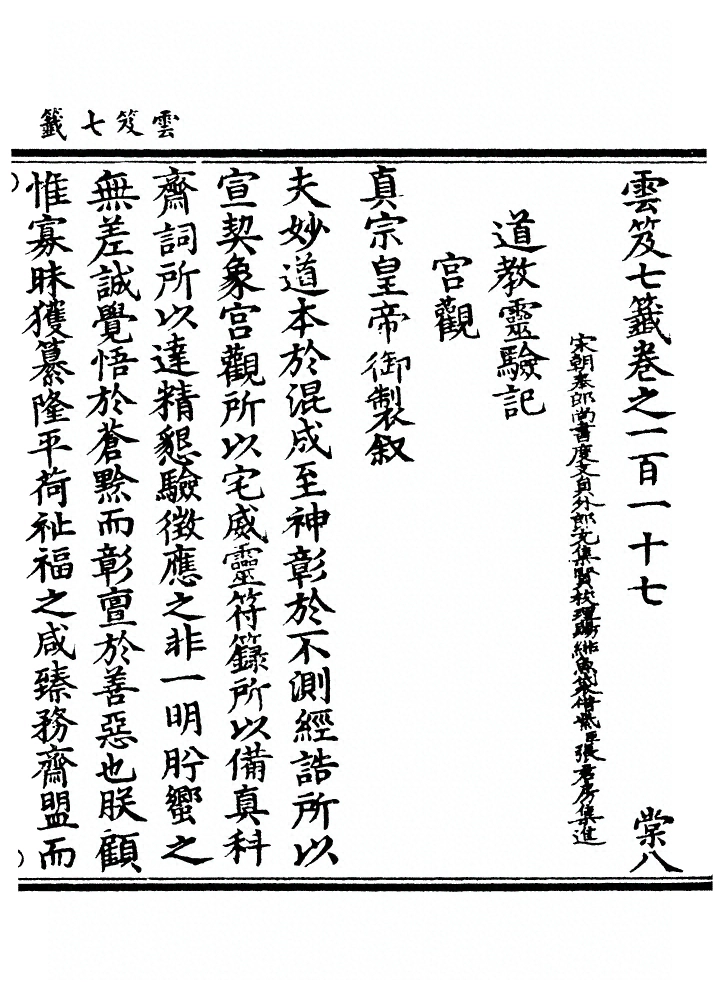 雲笈七籤
雲笈七籤卷之一百一十七 棠八
宋朝奉郎尚書度支員外郎充集賢校理賜緋魚袋借紫臣張君房集進
道教靈驗記
宮觀
真宗皇帝御製叙
夫妙道本於混成至神彰於不測經誥所以
宣契象宮觀所以宅威靈符籙所以備真科
齋詞所以達精懇驗徵應之非一明肸蠁之
無差誠覺悟於蒼黔而彰亶於善惡也朕顧
惟寡昧獲纂隆平荷祉福之咸臻務齋盟而